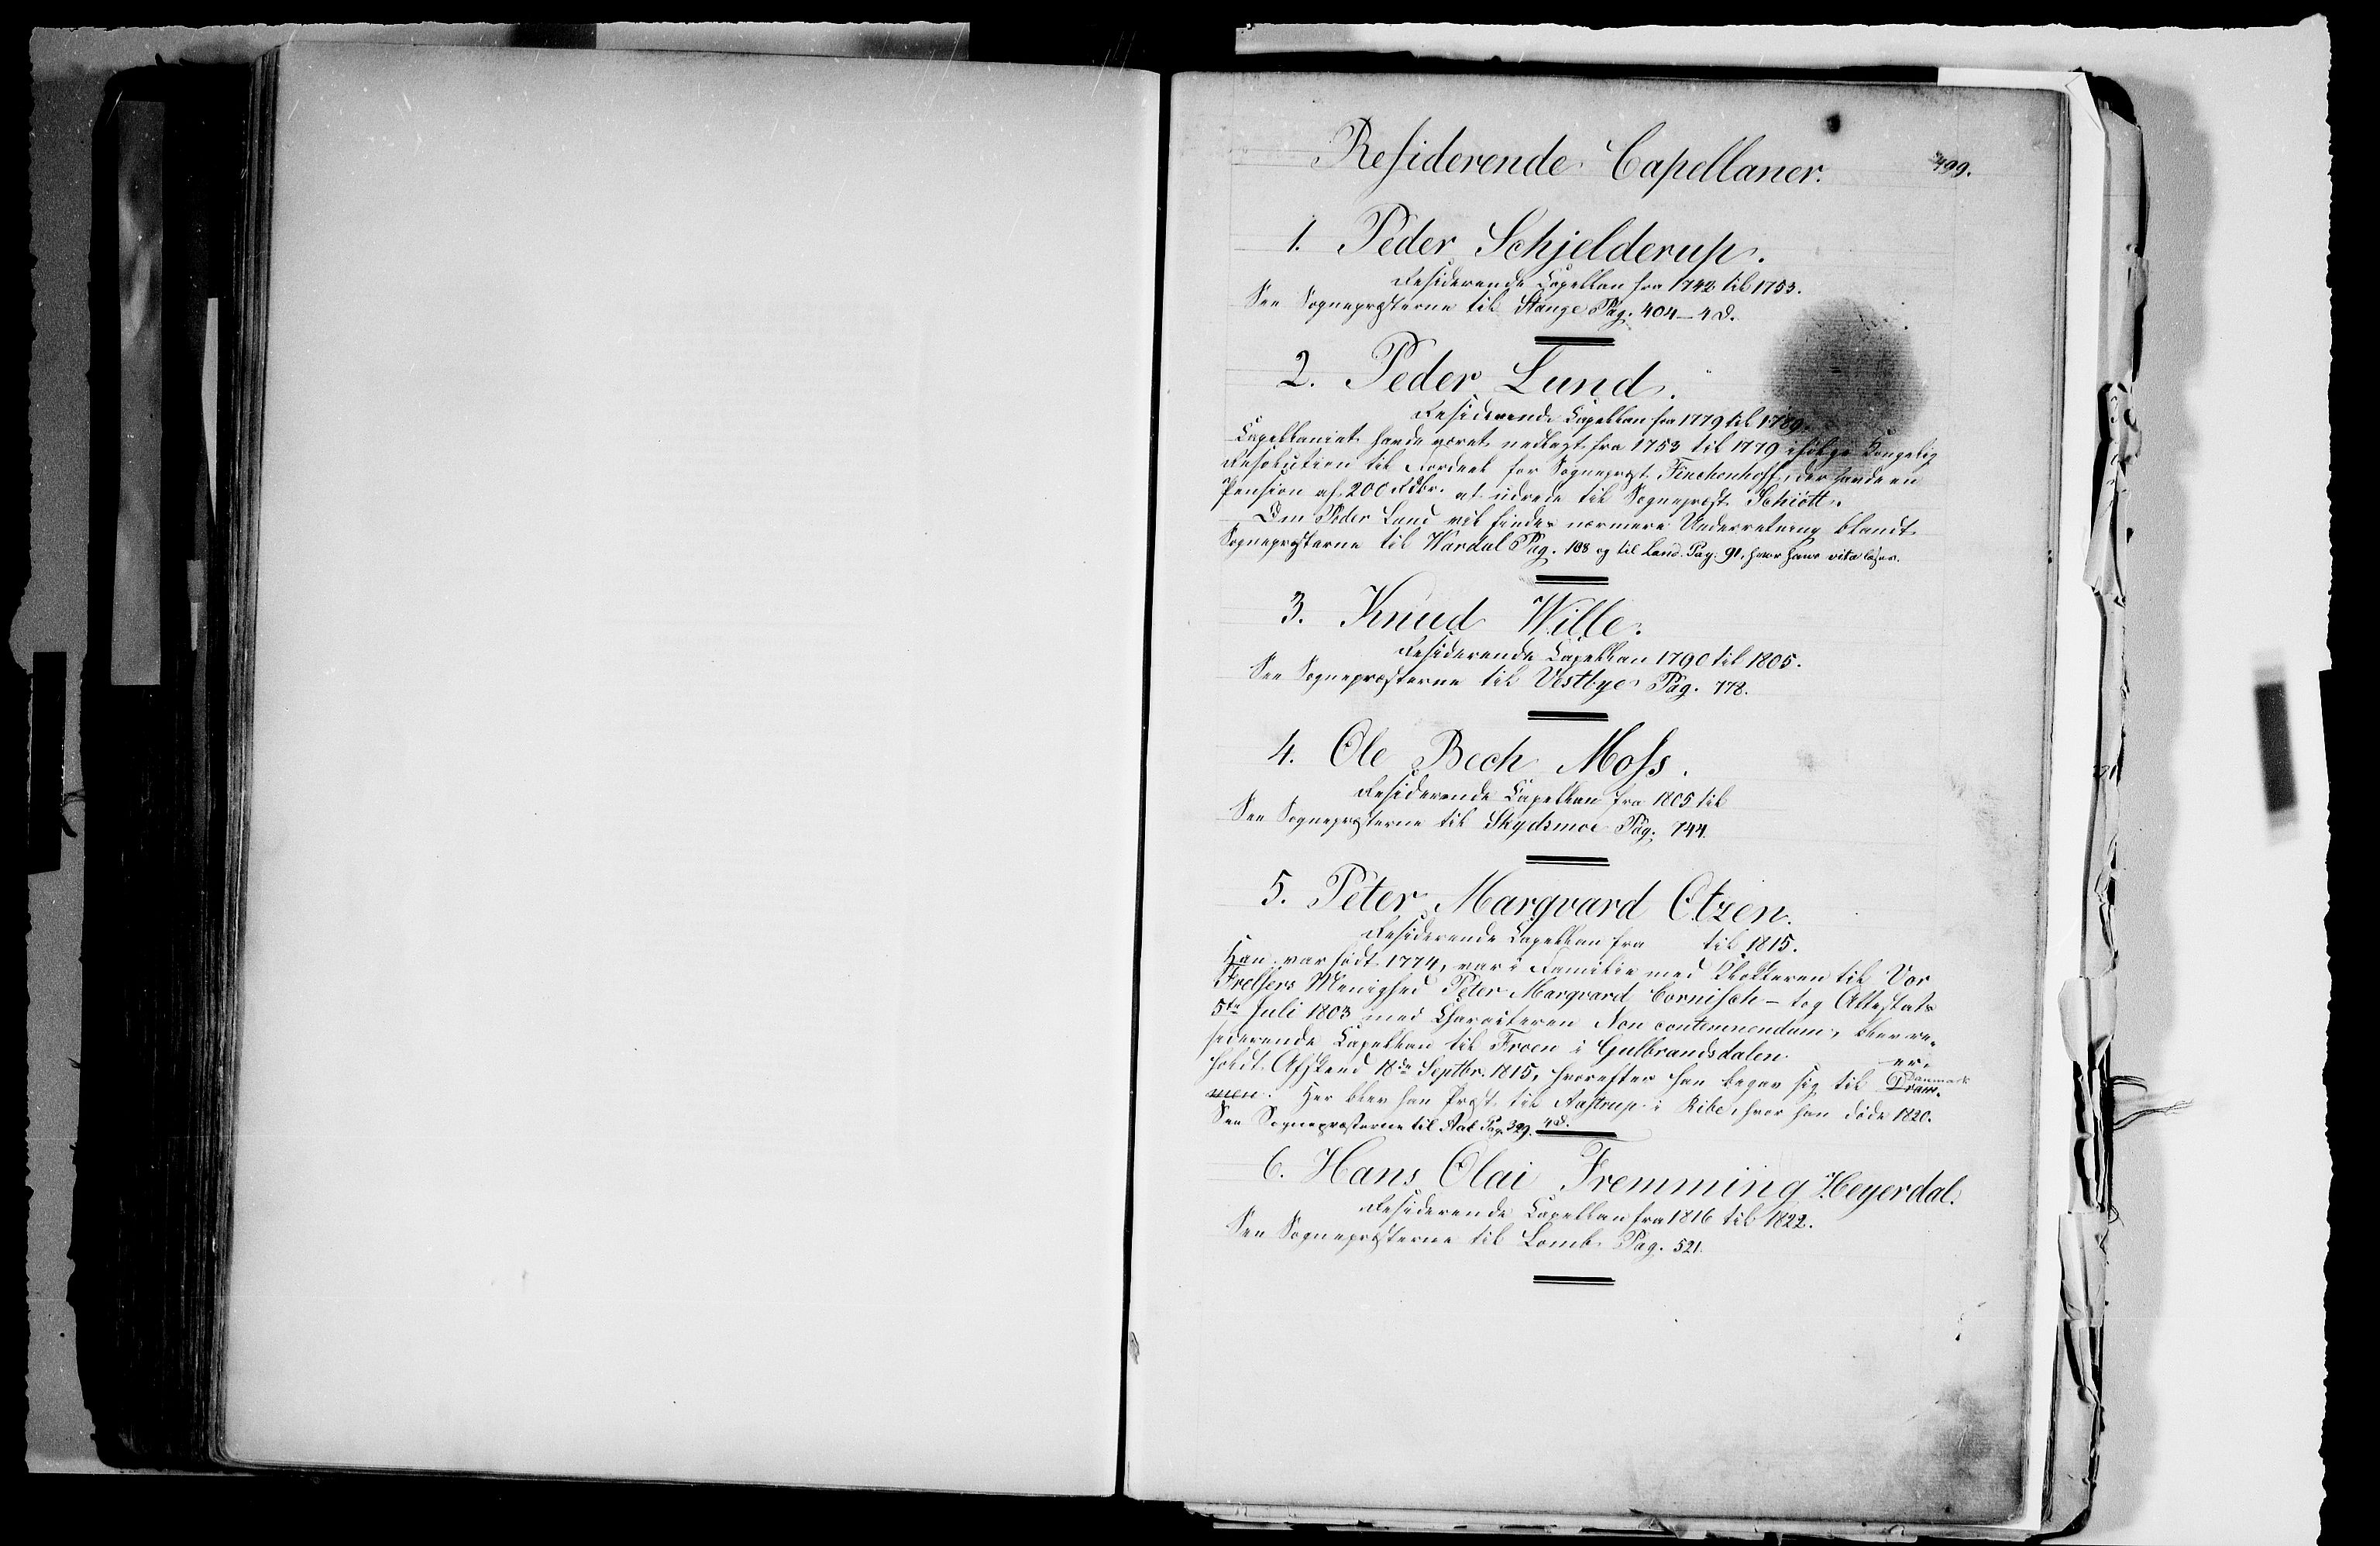 Residerende Capellaner.
499.
1. Peder Schjelderup.
Residerende Capellan fra 1742 til 1753.
See Sognepræsterne til Stange Pag. 404 – 4 D.
2. Peder Lund.
Residerende Capellan fra 1779 til 1789.
Capellaniet havde været nedlagt fra 1753 til 1779 ifølge Kongelig
Resolution til Fordeel for Sognepræst Finckenhoff, der havde en
Pension af 200 Rdlr. at udrede til Sognepræst Schiött.
Om Peder Lund vil findes nærmere Underretning blandt
Sognepræsterne til Wardal Pag. 108 og til Land Pag. 91, hvor hans vita læses.
3. Knud Wille.
Residerende Capellan 1790 til 1805.
See Sognepræsterne til Vestbye Pag. 778.
4. Ole Bech Moss.
Residerende Capellan fra 1805 til
See Sognepræsterne til Skydsmoe Pag. 744.
5. Peter Marqvard Otzen.
Residerende Capellan fra til 1815.
Han var født 1774, var i Familie med Klokkeren til Vor
Frelsers Menighed Peter Marqvard Cornisch – tog Attestats
5te Juli 1803 med Characteren Non contemnendum, blev re-
siderende Capellan til Froen i Gulbrandsdalen. er-
holdt Afskeed 18de Septbr. 1815, hvorefter han begav sig til Dram- Danmark
men. Her blev han Præst til Aastrup i Ribe, hvor han døde 1820.
See Sognepræsterne til Aal Pag. 329. 4 D.
6. Hans Olai Fremming Heyerdal.
Residerende Capellan fra 1816 til 1822.
See Sognepræsterne til Lomb Pag. 521.